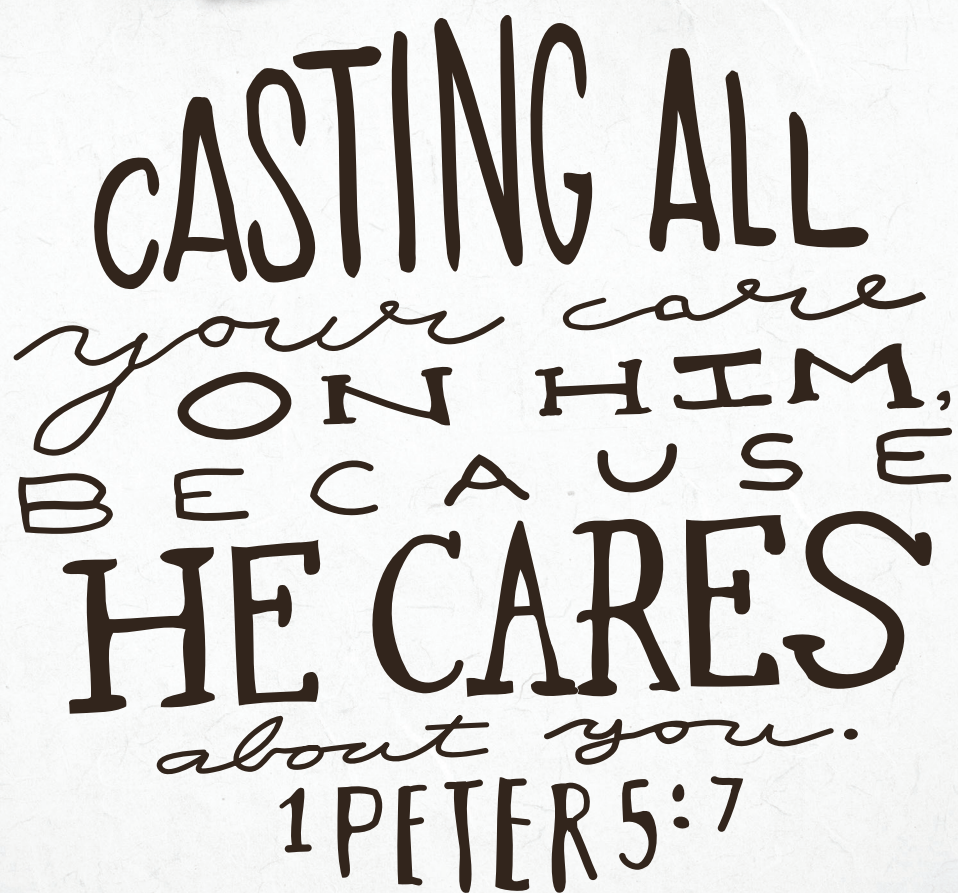 CASTING ALL
your care
ON HIM,
BECAUSE
HE CARES
about you.
1 PETER 5:7